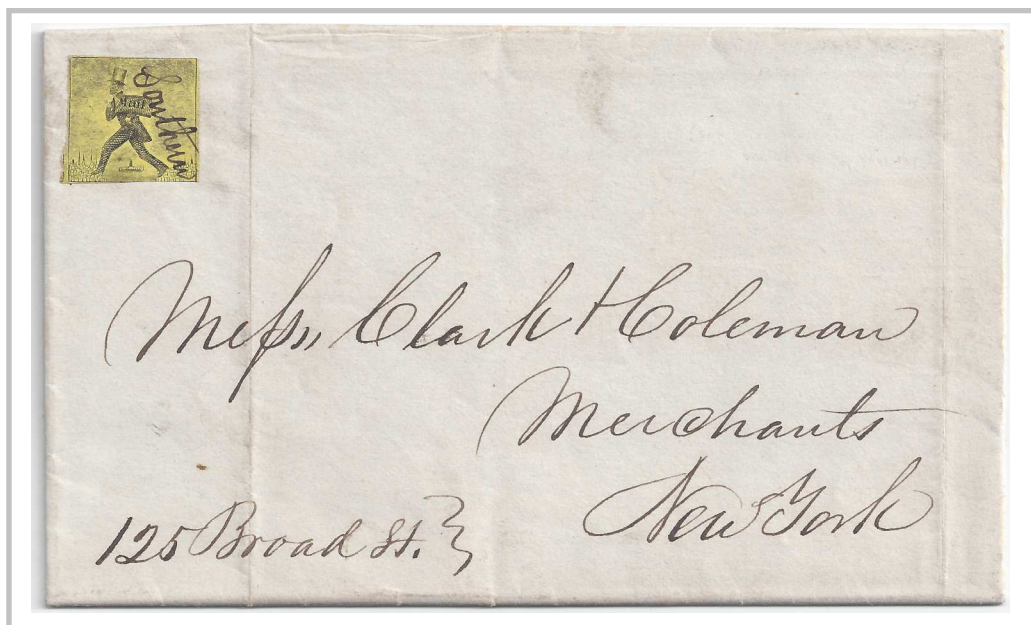 Mail
Southern
Messrs Clark & Coleman
Merchants
New York
125 Broad St.